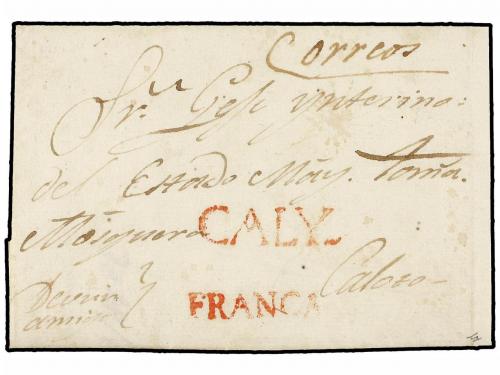 Correos
Sr. Gefe ynterino
del Estado May. Toma.
Mosquera
CALY.
De su
amigo
FRANCA